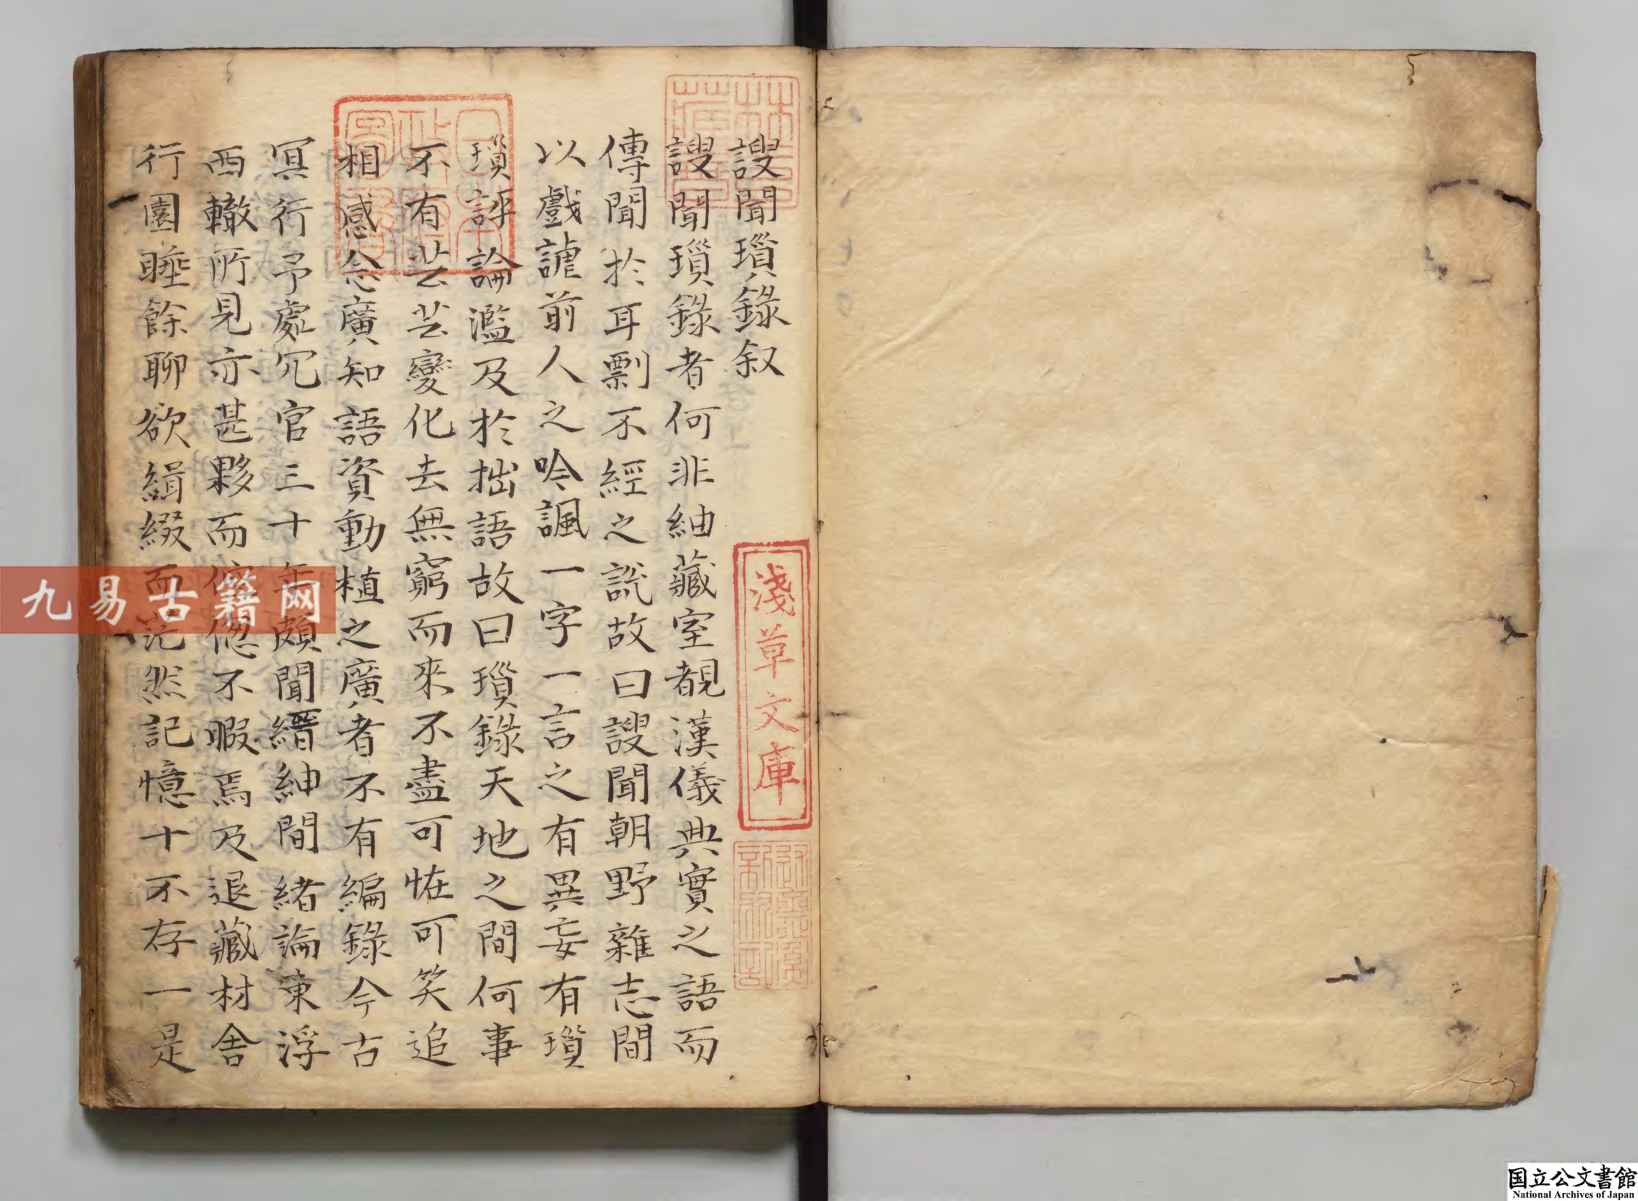 謏聞瑣錄叙
謏聞瑣錄者何非紬藏室覩漢儀典實之語而
傳聞於耳剽不經之說故曰謏聞朝野雜志間
以戲謔前人之吟諷一字一言之有異妄有瑣
瑣評論濫及於拙語故曰瑣錄天地之間何事
不有芸芸變化去無窮而來不盡可恠可笑追
相感念廣知語資動植之廣者不有編錄今古
冥行予處冗官三十年頗聞縉紳間緒論東浮
西轍所見亦甚夥而倥傯不暇焉及退藏村舍
行園睡餘聊欲緝綴而茫然記憶十不存一是
淺草文庫
九易古籍网
国立公文書館
National Archives of Japan